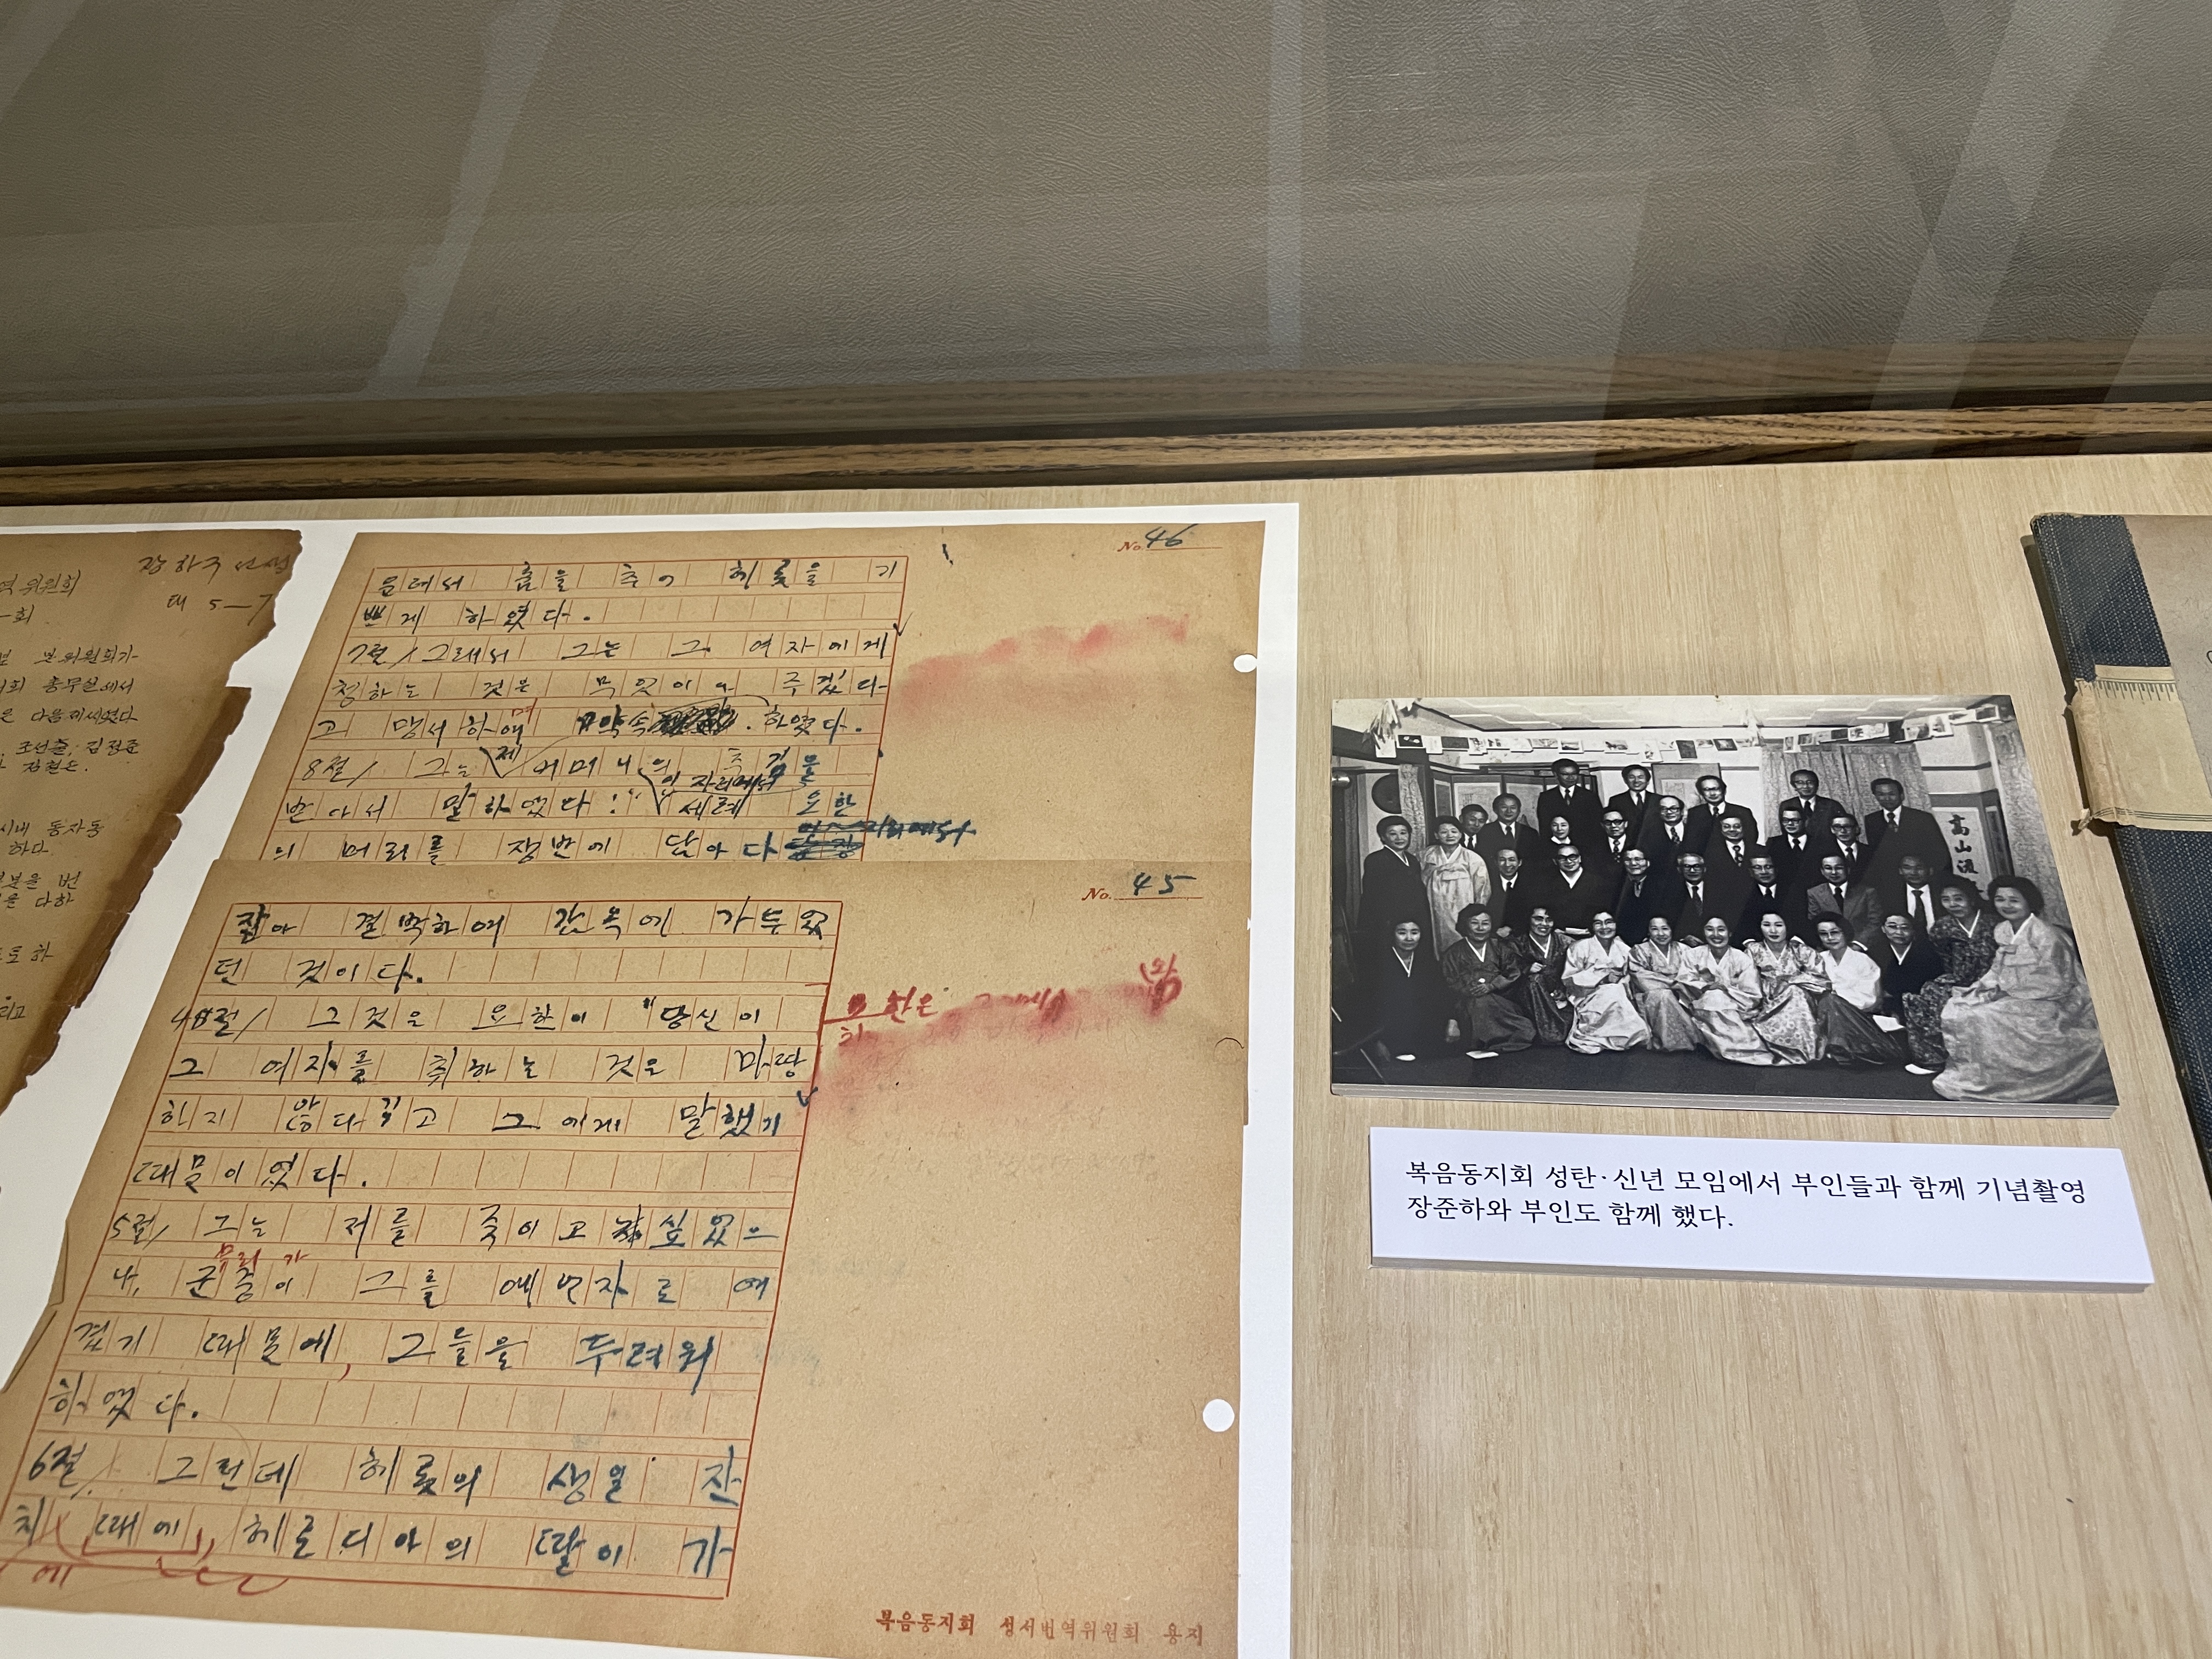 장하구 선생
위원회
태 5-7
회
분위원회가
회 총무실에서
은 다음과 같았다
조선출, 김정준
시내 동자동
하다
분을 번
을 다하
도 하
리고
No. 46
운데서 춤을 추어 헤롯을 기
쁘게 하였다.
7절/ 그래서 그는 그 여자에게
청하는 것은 무엇이나 주겠다
고 맹서하며 약속 하였다.
8절/ 그는 제 어머니의 추김을
받아서 말하였다! "이 자리에서 세례 요한
의 머리를 쟁반에 담아 다
No. 45
잡아 결박하여 간옥에 가두었
던 것이다.
4절/ 그것은 요한이 "당신이
요한은
그 여자를 취하는 것은 마땅
하지 않다"고 그에게 말했기
때문이었다.
5절/ 그는 저를 죽이고 싶었으
무리가
나, 군중이 그를 예언자로 여
겼기 때문에, 그들을 두려워
하였다.
6절/ 그런데 헤롯의 생일 잔
치 때에 헤로디아의 딸이 가
에
복음동지회 성서번역위원회 용지
高山流
복음동지회 성탄·신년 모임에서 부인들과 함께 기념촬영
장준하와 부인도 함께 했다.